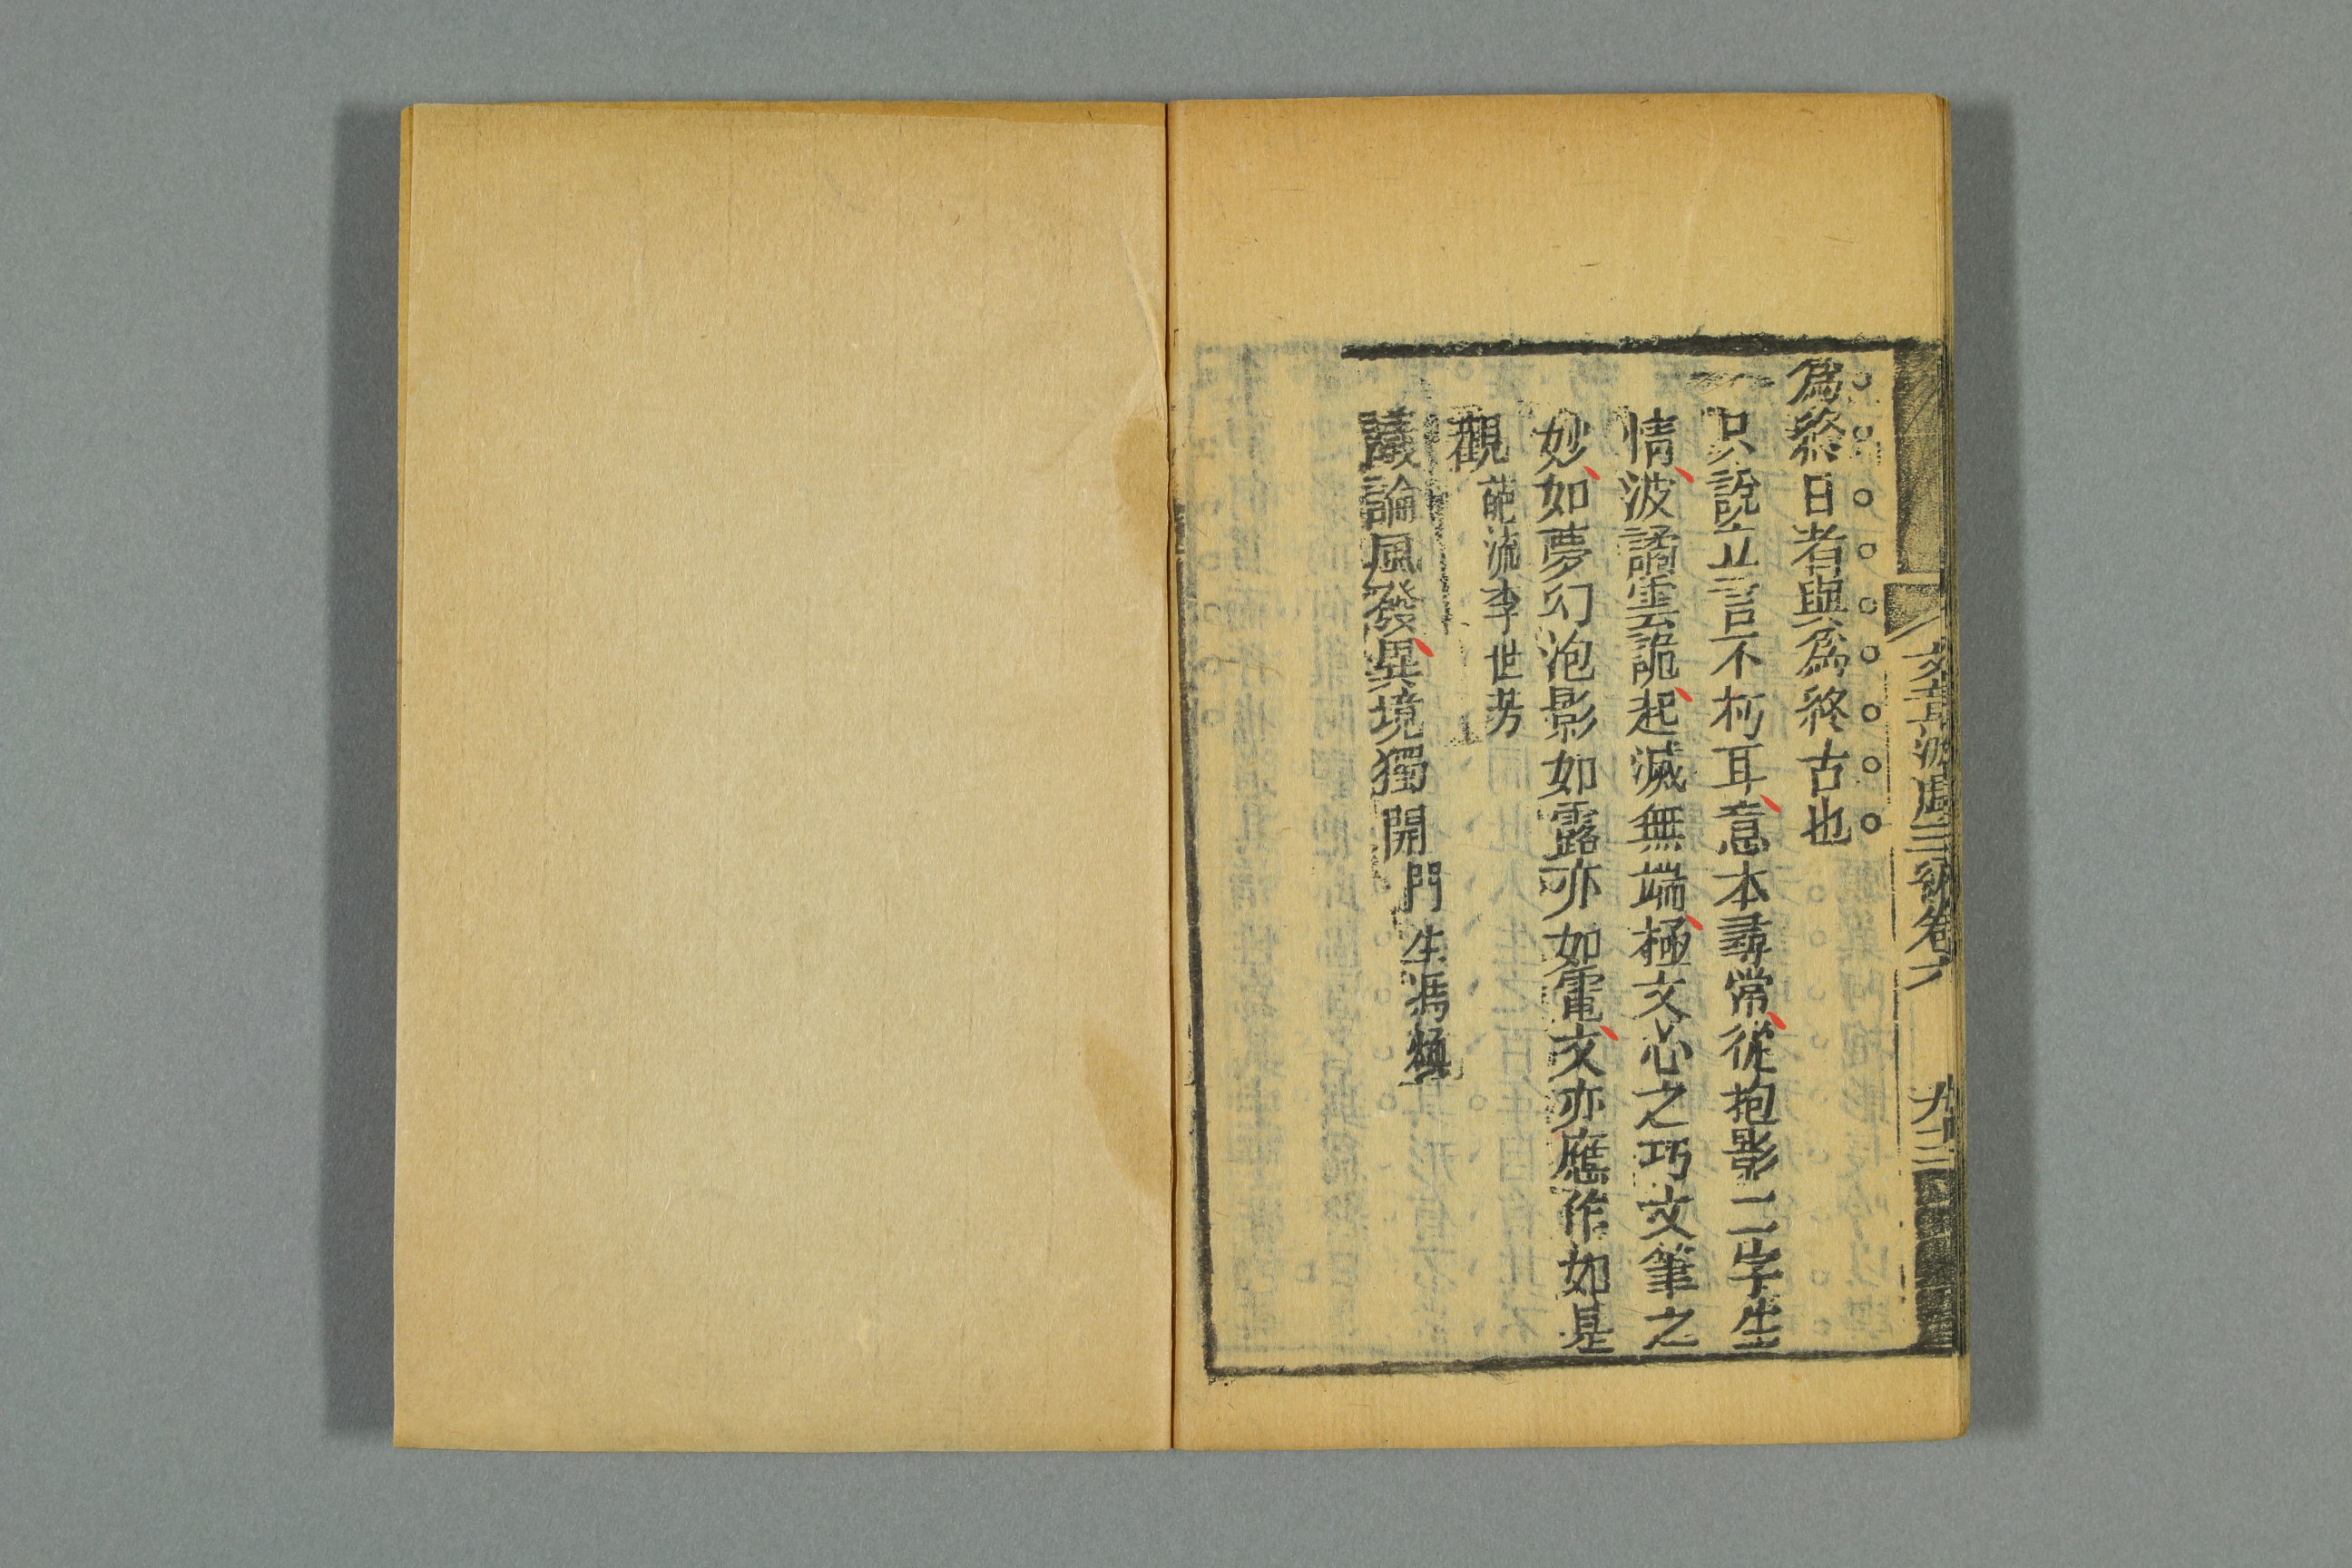 為終日者與為終古也
只說立言不朽耳意本尋常從抱影二字生
情波譎雲詭起滅無端極文心之巧文筆之
妙如夢幻泡影如露亦如電文亦應作如是
觀 李世
議論風發異境獨開 門生馮
文章游戲三編卷六